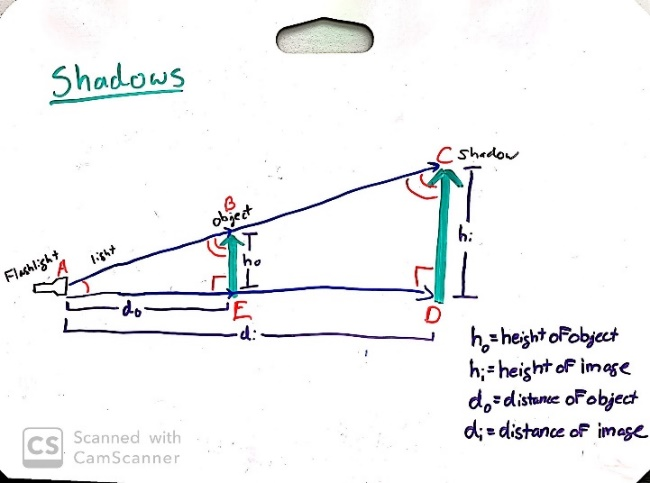 Shadows
C Shadow
B
object
Flashlight
A
light
ho
hi
do
E
D
di
ho = height of object
hi = height of image
do = distance of object
di = distance of image
CS Scanned with
CamScanner